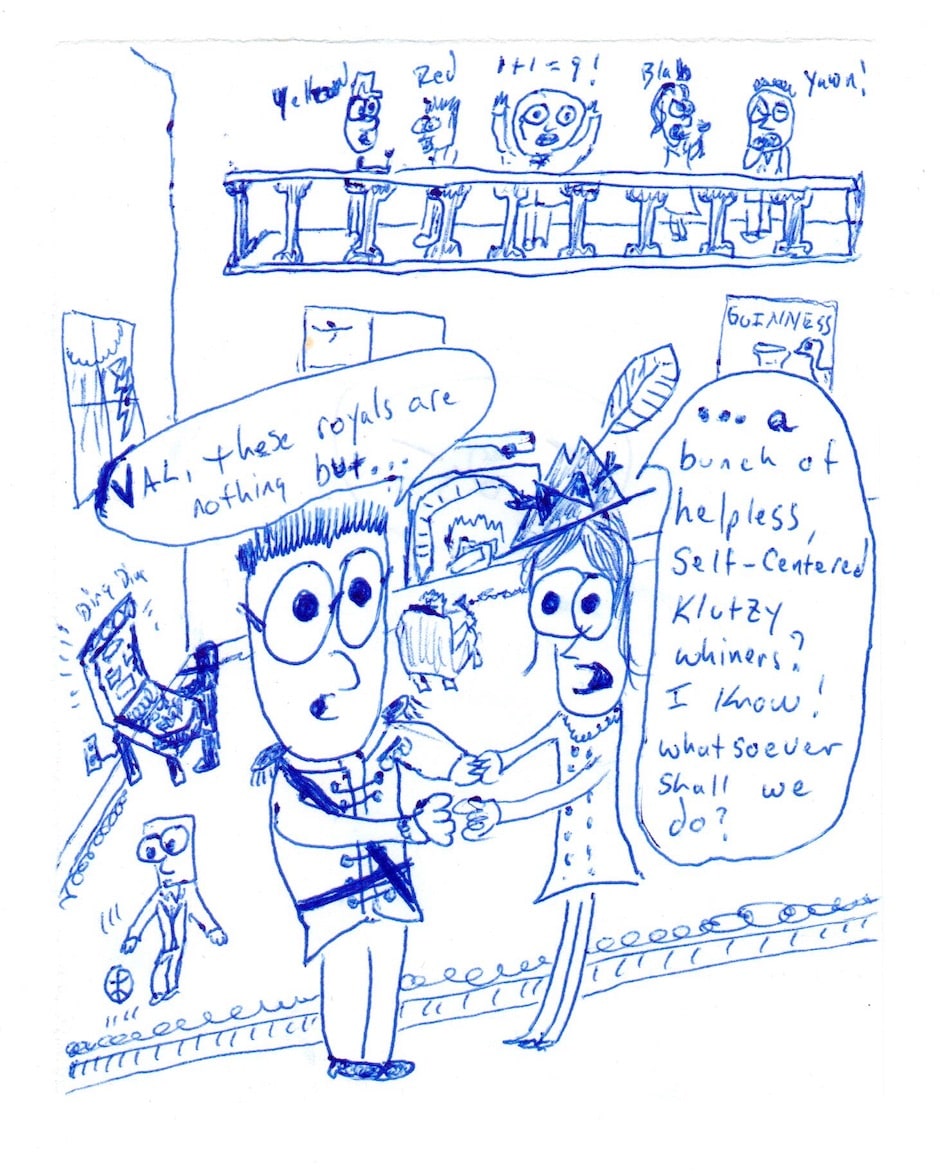 Yellow
Red
1+1=9!
Blah
Yawn!
GUINNESS
VAL, these royals are
nothing but...
... a
bunch of
helpless,
Self-Centered
Klutzy
whiners?
I know!
whatsoever
shall we
do?
Ding Ding